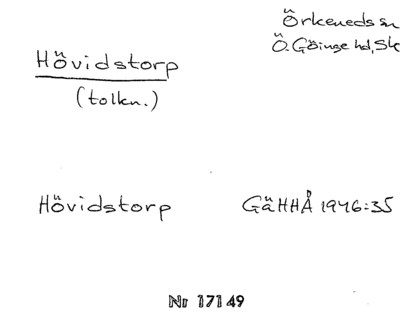 Örkeneds sn
Ö. Göinge hd, Sk
Hövidstorp
(tolkn.)
Hövidstorp GäHHÅ 1946:35
Nr 17149